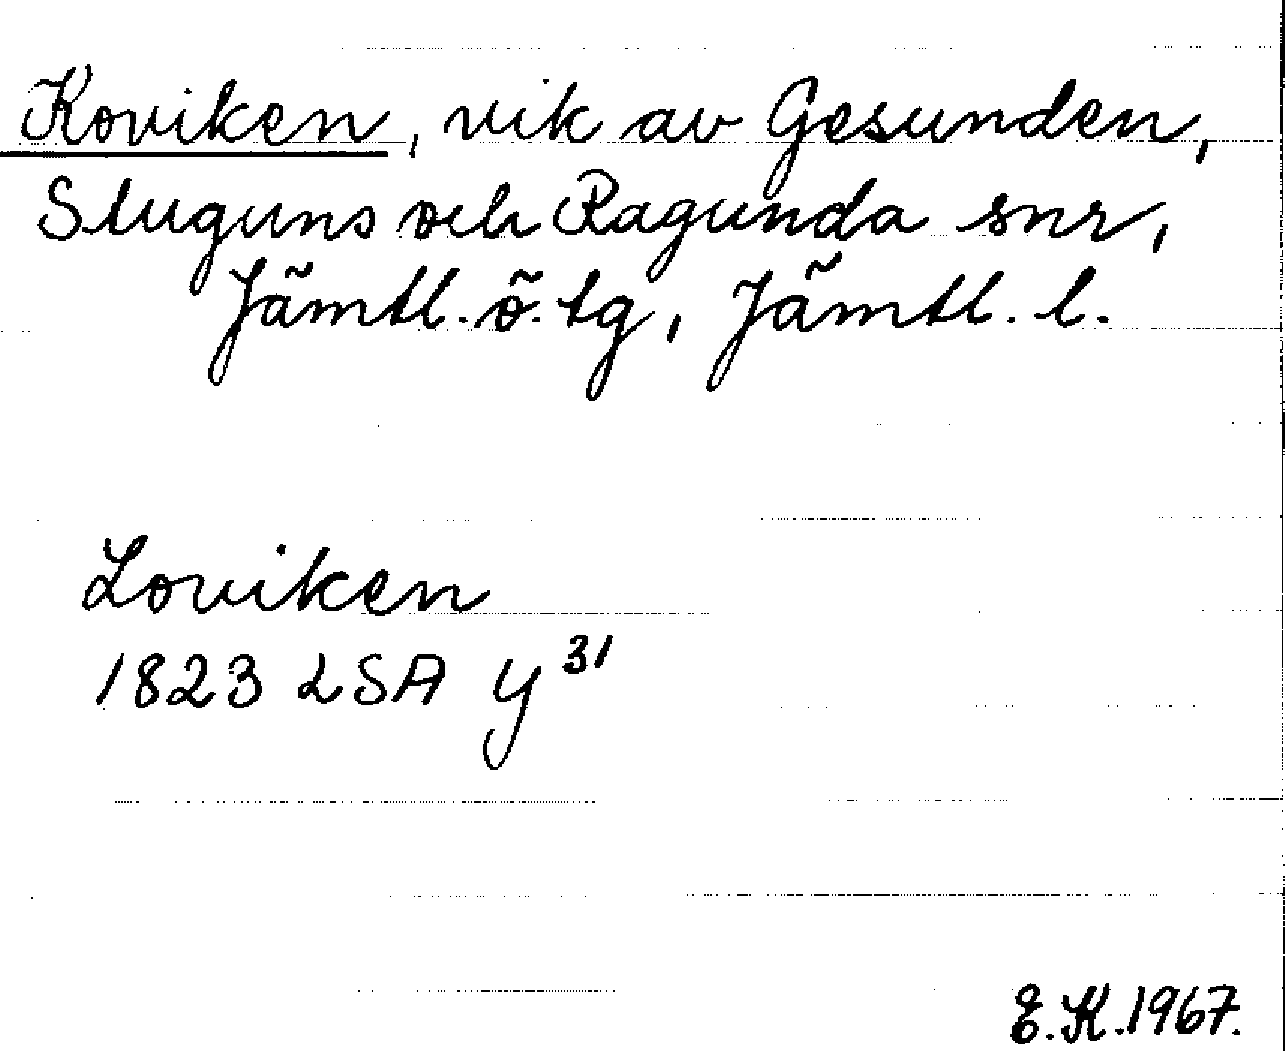 Koviken, vik av Gesunden,
Stuguns och Ragunda snr,
Jämtl. ö. tg, Jämtl. l.
Loviken
1823 LSA y³¹
E.K.1967.